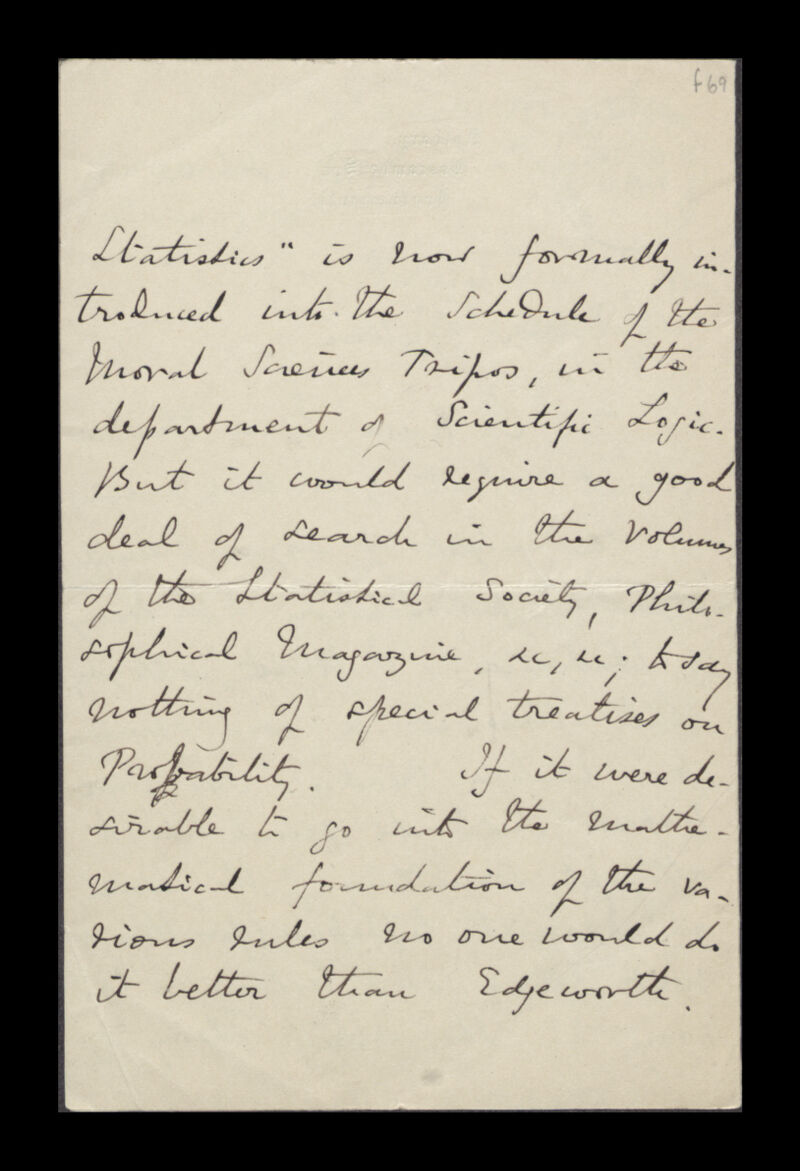 f69
Statistics" is now formally in-
troduced into the Schedule of the
Moral Sciences Tripos, in the
department of Scientific Logic.
But it would require a good
deal of search in the volumes
of the Statistical Society, Philo-
sophical Magazine, &c, &c; to say
nothing of special treatises on
Probability. If it were de-
sirable to go into the mathe-
matical foundation of the va-
rious rules no one would do
it better than Edgeworth.